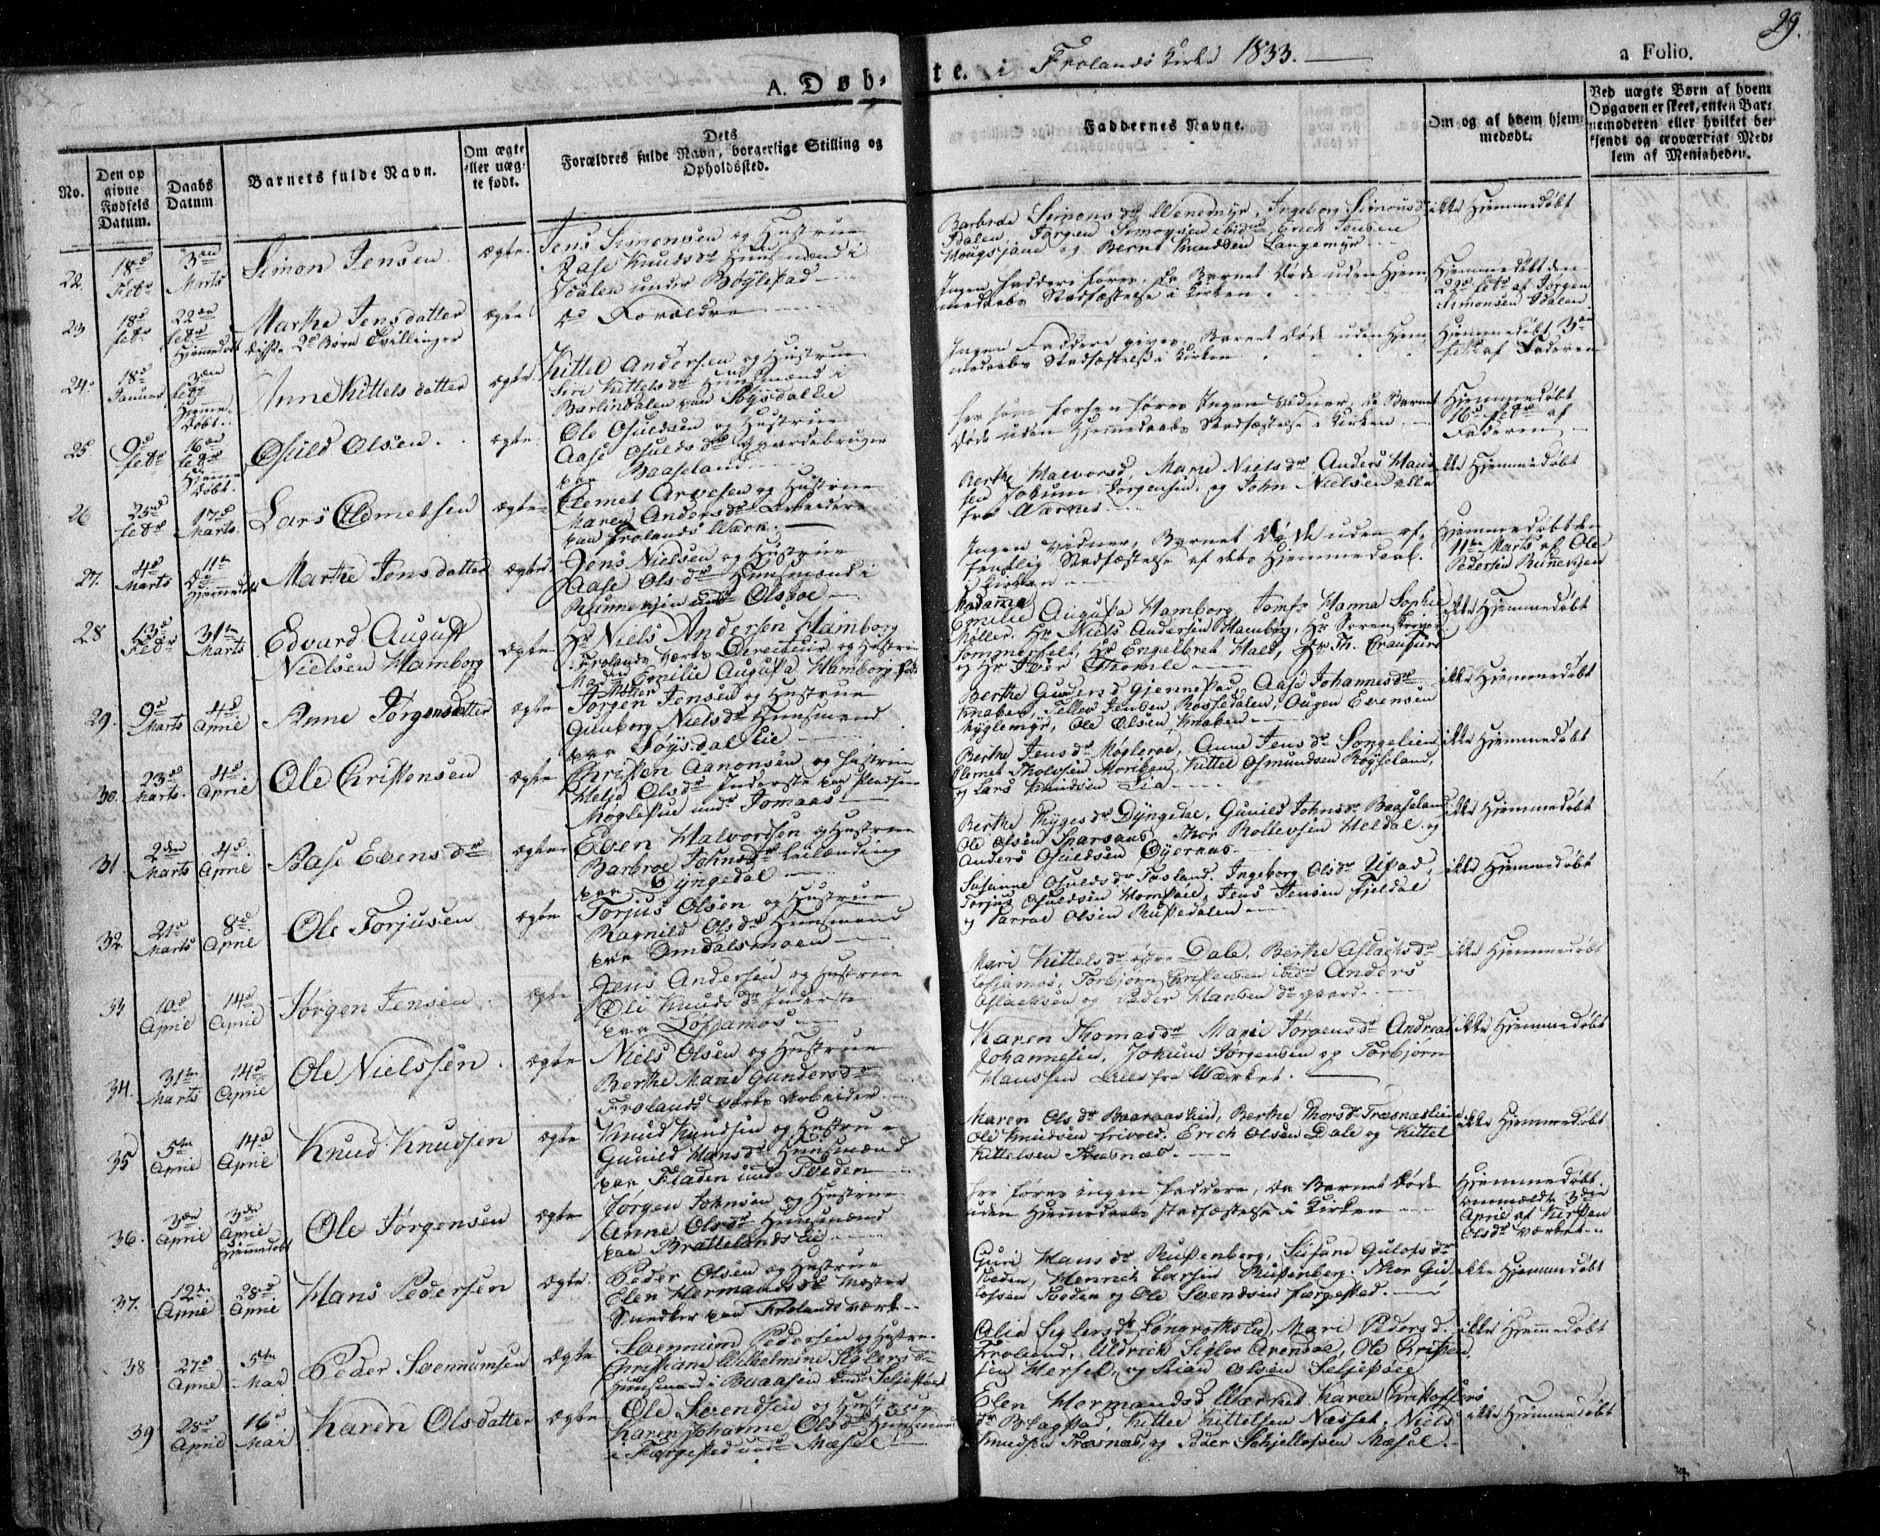 A. Døb-te. i Frolands Kirke 1833.
a Folio.
29.
No.
Den op
givne
Fødsels
Datum.
Daabs
Datum
Barnets fulde Navn.
Om ægte
eller uæg-
te født.
Dets
Forældres fulde Navn, borgerlige Stilling og
Opholdssted.
Faddernes Navne.
Om og af hvem hjem-
medøbt.
Ved uægte Børn af hvem
Opgaven er skeet, enten Bar-
nemoderen eller hvilket be-
kjendt og troværdigt Med-
lem af Menigheden.
22.
18de
Febr
3die
Marts
Simon Jensen
ægte
Jens Simonsen og Hustrue
Aase Knudsdr Huusmænd i
Barbroe Simonsdr Wenemyr, Ingeborg Simonsdr
Dalen, Jørgen Simonsen ibid Erich Jensen
og Bernt Knudsen Langemyr
ikke Hjemmedøbt
23
18de
febr
22de
febr
Hjemmedøbt
Marthe Jensdatter
disse 2de Børn Tvillinger
ægte
do Forældre
Ingen Faddere føres, da Barnet døde uden Hjem-
medaabs Stadfæstelse i Kirken
Hjemmedøbt den
22de febr af Jørgen
Simonsen Dalen
24.
18de
Januar
3die
febr
Hjemme-
døbt
Anne Kittelsdatter
ægte
Kittel Andersen og Hustrue
Siri Kittelsdr Huusmænd i
Barlindalen paa Løysdallie
Ingen Faddere gives, Barnet døde uden Hjem-
medaabs Stadfæstelse i Kirken
Hjemmedøbt 3die
febr af Faderen
25
9de
febr
16de
febr
Hjemme-
døbt.
Osuld Olsen.
ægte
Ole Osuldsen og Hustrue
Aase Osuldsdr Gaardebruger
paa Baaseland
døde uden Hjemmedaabs Stadfæstelse i Kirken
Hjemmedøbt
16de febr af
Faderen
26
25de
febr
17de
Marts
Lars Clemetsen
ægte
Clemet Arvesen og Hustrue
Maren Andersdr Arbeider
paa Frolands Værk.
Berthe Halvorsd, Marie Nielsdr Anders Han-
sen Jokum Jørgensen, og John Nielsen alle
fra Værket
ikke Hjemmedøbt
27.
4de
Marts
11te
do
Hjemmedøbt
Marthe Jensdatter
ægte
Jens Nielsen og Hustrue
Aase Olsdr Huusmænd i
Runnevjen under Olsboe
Ingen Vidner, Barnet døde uden of-
fentlig Stadfæstelse af dets Hjemmedaab
i Kirken
Hjemmedøbt den
11te Marts af Ole
Pedersen Runevjen
28
13de
Febr
31te
Marts
Edvard August
Nielsen Hamborg
ægte
Hr Niels Andersen Hamborg
Frolands Værks Directeur og Hustrue
Madm Emilie Augusta Hamborg født
Møller
Madamme
Emilie Augusta Hamborg, Jomfr Hanna Sophie
Møller. Hr Niels Andersen Hamborg, Hr Sorenskriver
Sommerfelt, Hr Engelbret Hald, Hr Th. Craufurd
og Hr Iver Thomle
ikke Hjemmedøbt
29.
9de
Marts
4de
Aprie
Anne Jørgensdatter
ægte
Jørgen Jensen og Hustrue
Gunborg Nielsdr Huusmænd
paa Løysdallie
Berthe Gundersd Gjennestad, Aase Johannesdr
Knaben, Tellev Jensen Rossedalen, Augen Evensen
Myglemyr, Ole Olsen Knaben
ikke Hjemmedøbt
30.
23de
Marts.
4de
Aprie
Ole Christensen
ægte
Christen Aanonsen og Hustrue
Helje Olsdr Inderster paa Pladsen
Møglestue under Jomaas
Berthe Jensdr Møglerøe, Anne Jensdr Songelien
Clemet Tholvsen Moriken, Kittel Osmundsen Røyseland,
og Lars Knudsen Lia
ikke Hjemmedøbt
31.
2den
Marts
4de
Aprie
Aase Evensdr
ægte
Even Halvordsen og Hustrue
Barbroe Johnsdr Leilænding
paa Dyngedal
Berthe Thygesdr Dyngedal, Gunild Johnsdr Baaseland
Ole Olsen Sparsaas, Thor Rollevsen Heldal og
Anders Osuldsen Øyernas
ikke Hjemmedøbt
32.
21de
Marts
8de
Aprie
Ole Torjusen
ægte
Torjus Olsen og Hustrue
Ragnild Olsdr Huusmænd
paa Omdalsmoen
Susanne Osuldsdr Fosland, Ingeborg Olsdr Ustad,
Torjus Osuldsen Homstøl, Jens Jensen Fjeldal
og Tarral Olsen Rustedalen
ikke Hjemmedøbt
33
10de
Aprie
14de
Aprie
Jørgen Jensen
ægte
Jens Andersen og Hustrue
Oli Knudsdr Inderste
paa Lofsjamos
Mari Kittelsdr øvre Dale, Berthe Aslachsdr
Lofsjamos, Torbjørn Christensen ibid Anders
Aslachsen og Peder Hansen do
ikke Hjemmedøbt
34.
31te
Marts
14de
Aprie
Ole Nielssen
ægte
Niels Olsen og Hustrue
Berthe Marie Gundersdr
Frolands Værks Arbeider
Karen Thomasdr Marie Jørgensdr Andreas
Johannesen, Jokum Jørgensen og Torbjørn
Hanssen alle fra Værket.
ikke Hjemmedøbt
35
5te
Aprie
14de
Aprie
Knud Knudsen
ægte
Knud Knudsen og Hustrue
Gunild Hansdr Huusmænd
paa Fladen under Tveden
Maren Olsdr Baaraaslien, Berthe Thorsdr Træsnæslien
Ole Knudsen Frivold, Erich Olsen Dale og Kittel
Kittelsen Træsnæs.
ikke Hjemmedøbt
36.
3die
Aprie
3die
Aprie
Hjemmedøbt
Ole Jørgensen
ægte
Jørgen Johnsen og Hustrue
Anne Olsdr Huusmænd
paa Brattelandslie
Her føres ingen Faddere, da Barnet døde
uden Hjemmedaabs Stadfæstelse i Kirken
Hjemmedøbt
anmældt 3die
Aprie af Kirsten
Olsdr Værket
37.
12te
Aprie
28de
Aprie
Hans Pedersen
ægte
Peder Olsen og Hustrue
Elen Hermandsdr Mester
Snedker paa Frolands Værk
Guri Hansdr Rustenberg, Susane Gulofsdr
Tveden, Henrich Larsen Rustenberg. Thor Gul-
lofsen Tveden og Ole Svendsen Færgestad.
ikke Hjemmedøbt
38
27de
Aprie
5te
Mai
Peder Svennumsen
ægte
Svennum Pedersen og Hustrue
Christiane Wilhelmine Siglersdr
Huusmænd i Buaasen under Seljestøel
Olie Siglersdr Langrotslie, Mari Pedersd.
Froland, Uldrich Sigler Arendal, Ole Kristen-
sen Hersel, og Stian Olsen Seljestøel
ikke Hjemmedøbt
39
25de
Aprie
16de
Mai
Karen Olsdatter
ægte
Ole Svendsen og Hustrue
Karen Johanne Olsdr Huusmænd
i Færgested under Mæsel
Elen Hermandsd Værket, Karen Christophers-
dr Blagstad Kittel Kittelsen Næsset, Niels
Knudsen Træsnæs, og Peder Schjellofsen Mæsel
ikke Hjemmedøbt